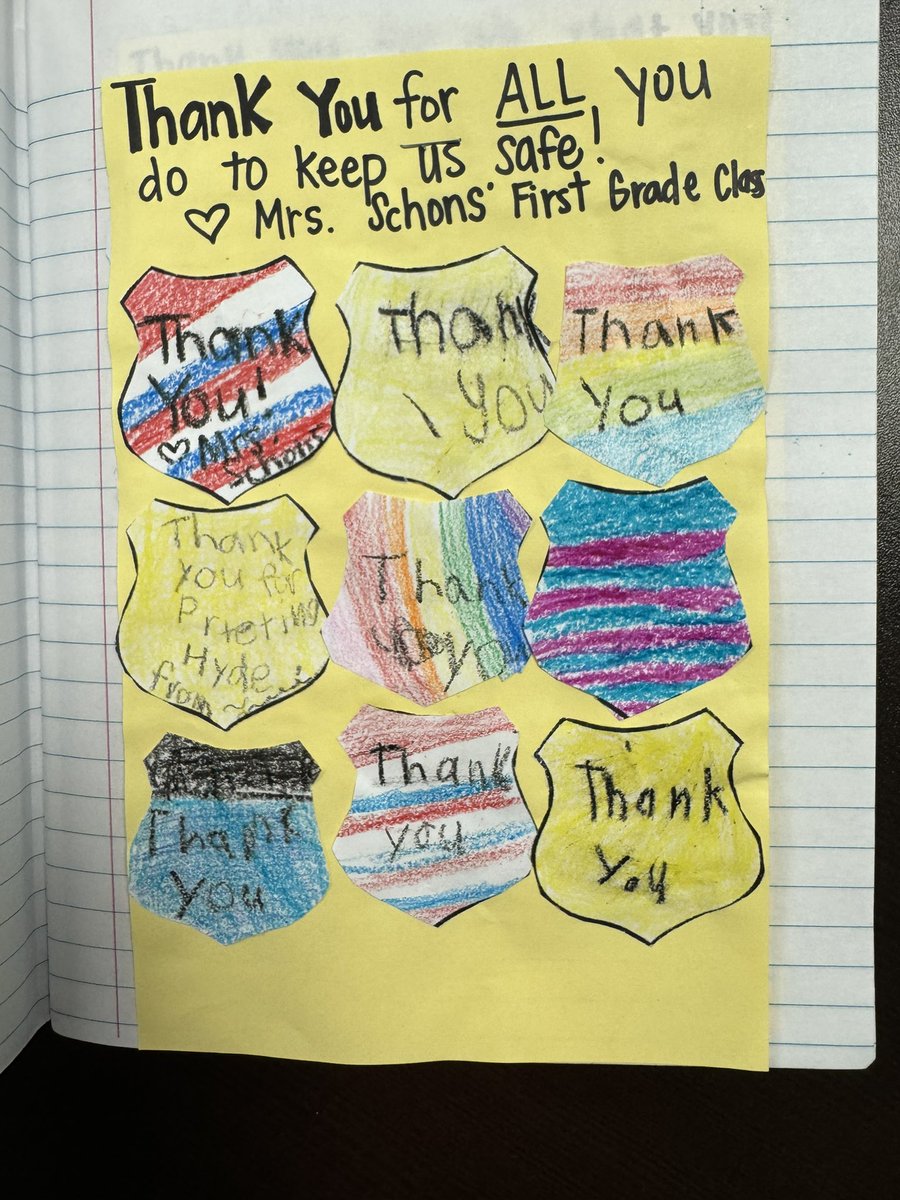 Thank You for ALL you
do to keep us safe!
♡ Mrs. Schons' First Grade Class
Thank
You!
♡ Mrs.
Schons
Thank
You
Thank
You
Thank
you for
Prteting
Hyde
from
Thank
you
Thank
you
Thank
you
Thank
you